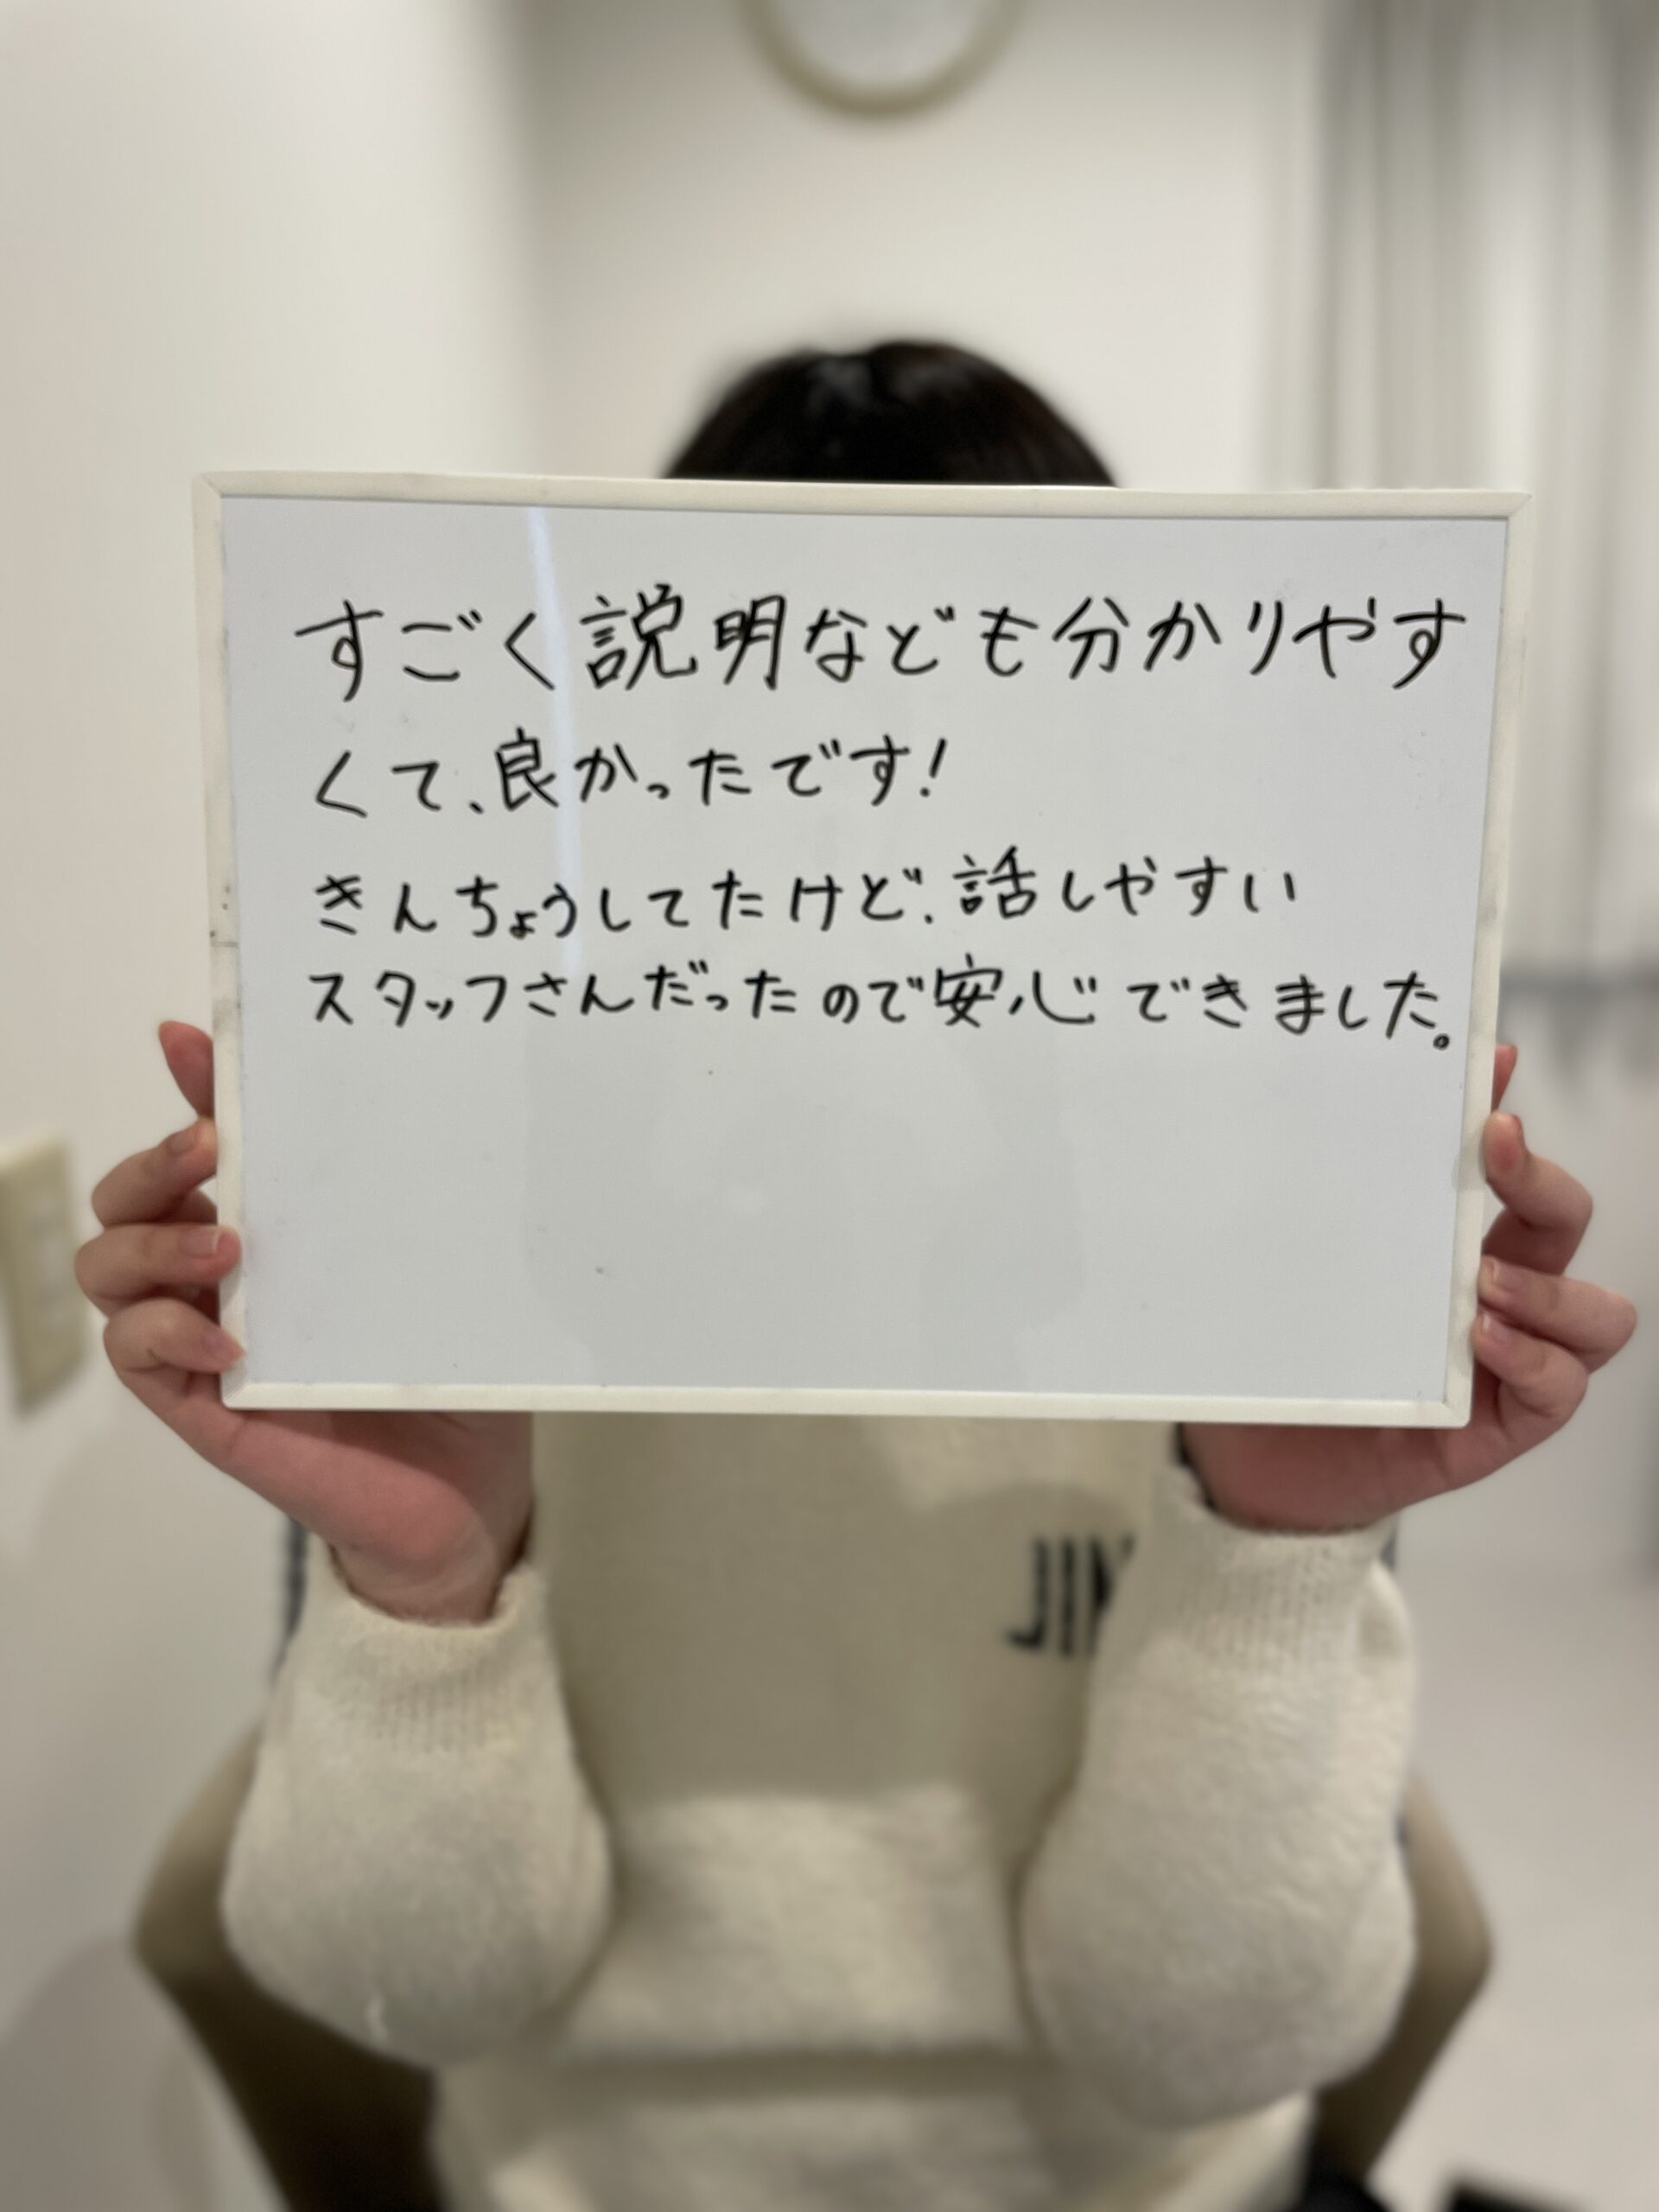 すごく説明なども分かりやす
くて、良かったです!
きんちょうしてたけど、話しやすい
スタッフさんだったので安心できました。